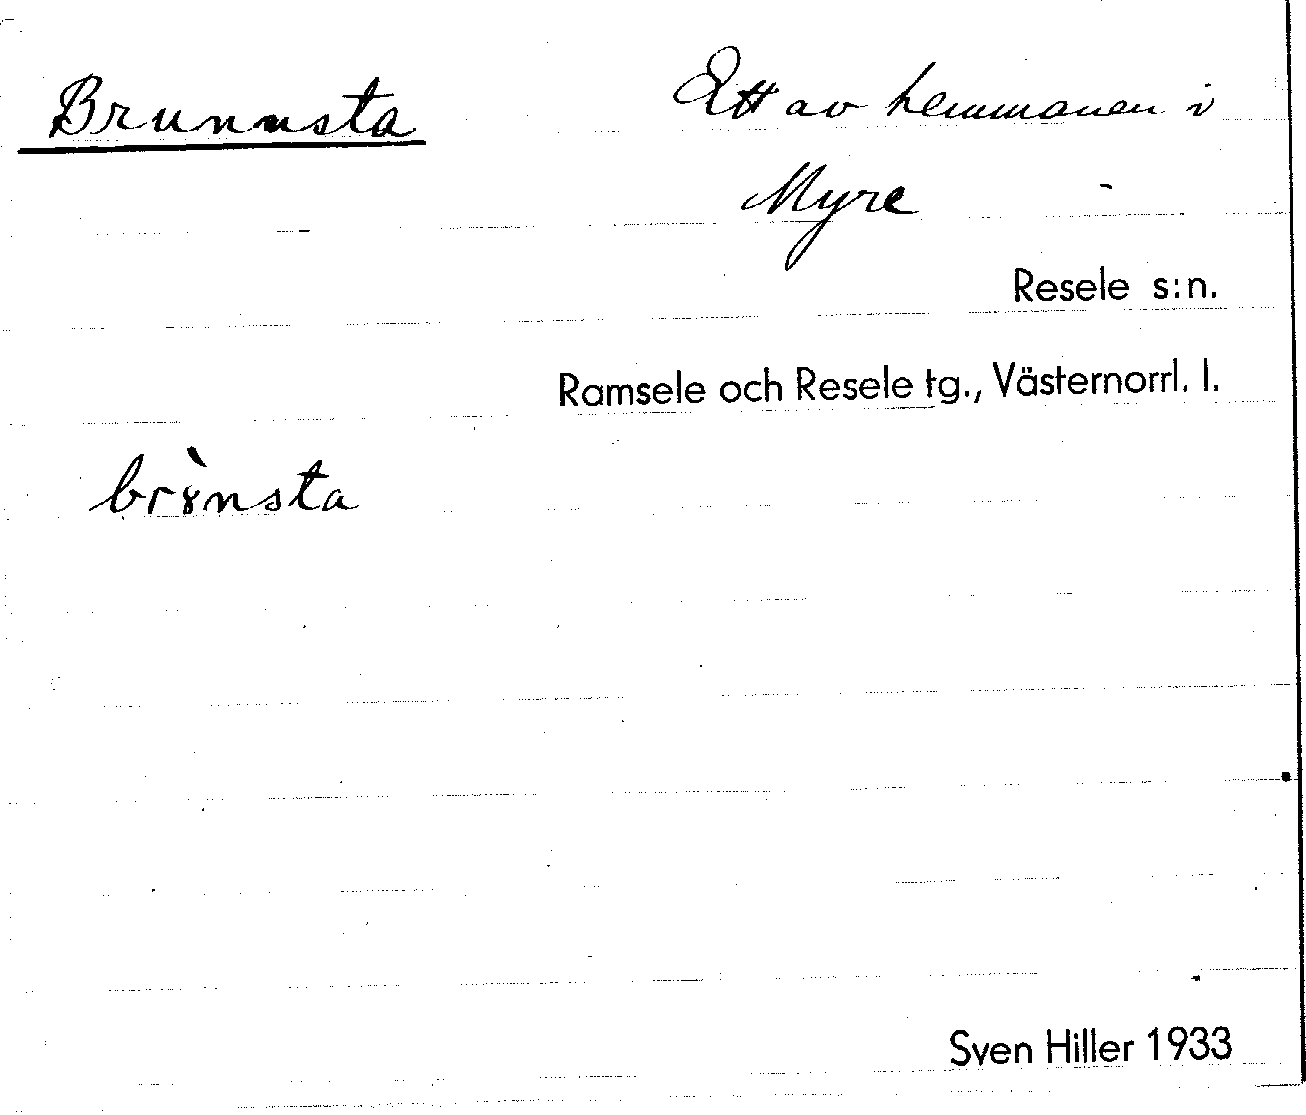 Brunnsta
Ett av hemmanen i
Myre
Resele s:n.
Ramsele och Resele tg., Västernorrl. l.
brɤ̀nsta
Sven Hiller 1933